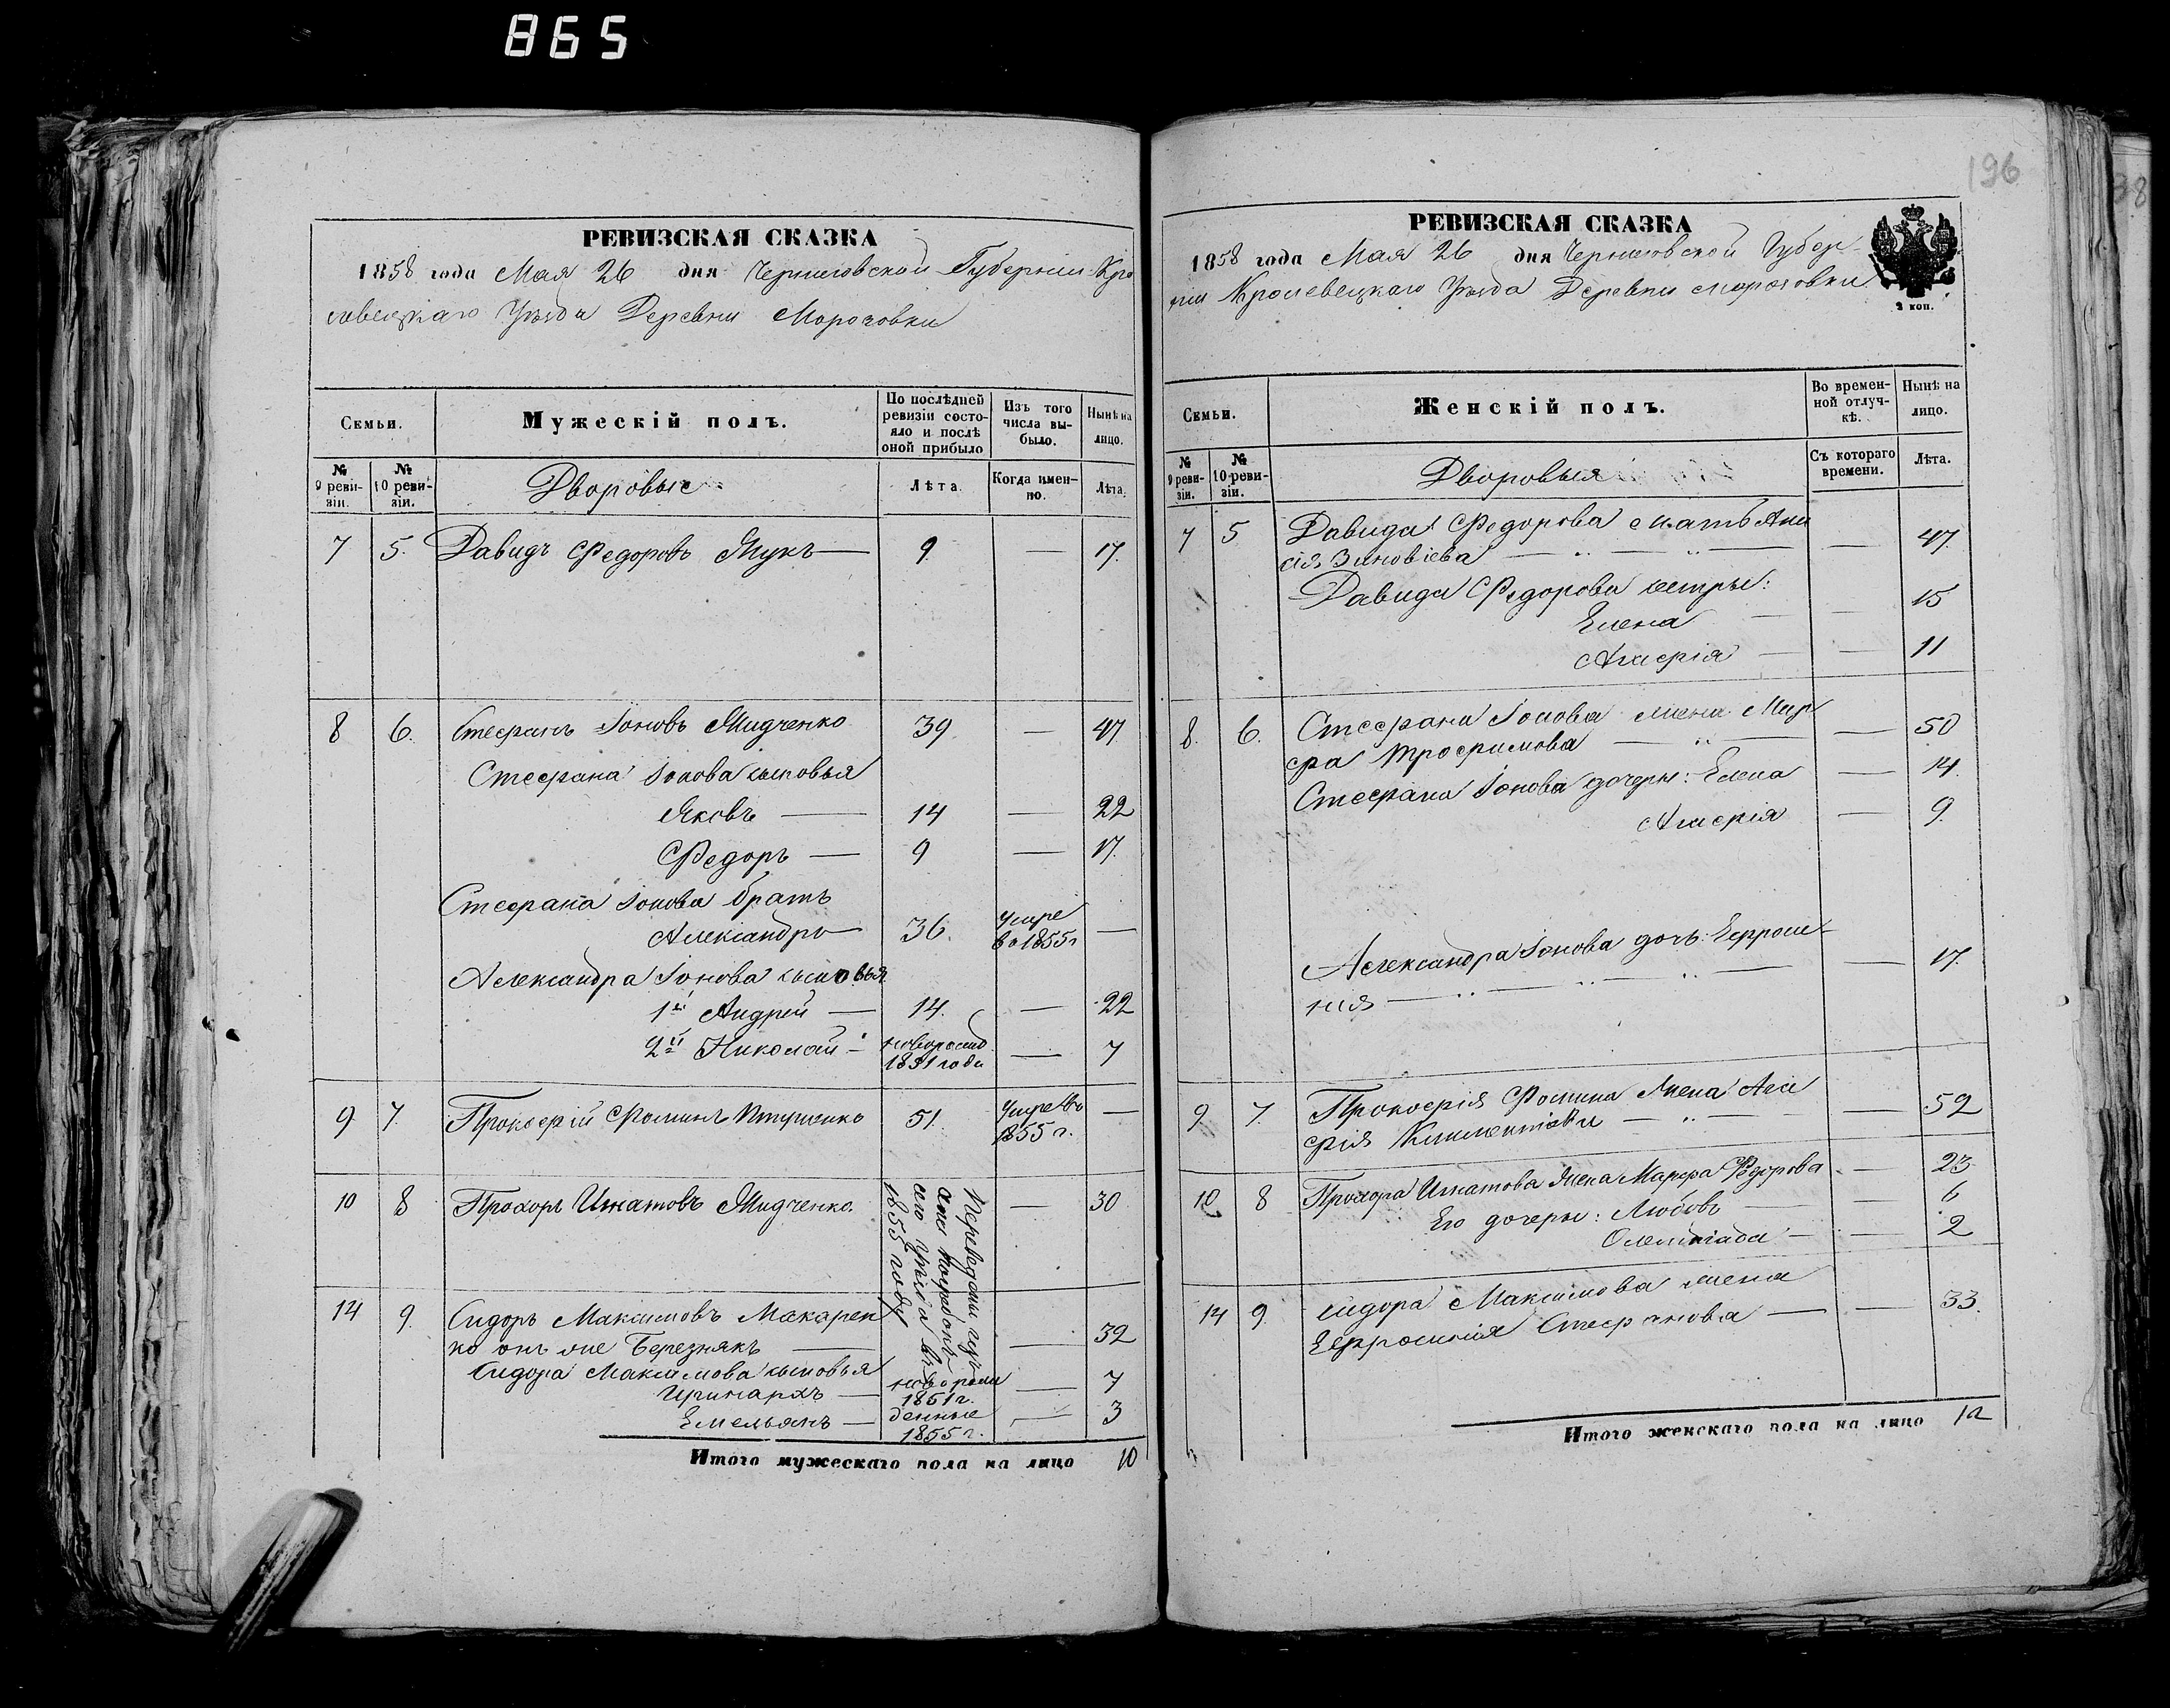 865
РЕВИЗСКАЯ СКАЗКА
1858 года Мая 26 дня Черниговской Губерніи Кро
левецкаго Уѣзда Деревни
Семьи.
Мужескій полъ.
По послѣдней ревизіи состояло и послѣ оной прибыло
Изъ того числа выбыло.
Нынѣ на лицо.
№ 9 ревизіи.
№ 10 ревизіи.
Дворовые
Лѣта.
Когда именно.
Лѣта.
7 5. Давидъ Федоровъ Жукъ — 9 — 17.
8 6. Стефанъ Іоновъ Мидченко 39. — 47
Стефана Іонова сыновья
Яковъ — 14 — 22
Федоръ — 9 — 17.
Стефана Іонова братъ
Александръ 36. умре въ 1855г —
Александра Іонова сыновья
1й Андрей — 14. — 22
2й Николай — новорожд 1851 года — 7
9 7. Прокофій Фоминъ 51. Умре въ 1855 г. —
10 8 Прохоръ Игнатовъ Мидченко. — 30
14 9. Сидоръ Максимовъ Макарен
ко онъ же Березнякъ — — 32
Переведены
сего Уѣзда въ
1855 году
Сидора Максимова сыновья
Иринархъ — новорож 1851 г. — 7
Емельянъ — денные 1855 г. — 3
Итого мужескаго пола на лицо 10
196
РЕВИЗСКАЯ СКАЗКА
1858 года Мая 26 дня Черниговской Губер-
ніи Кролевецкаго Уѣзда Деревни
2 коп.
Семьи.
Женскій полъ.
Во временной отлучкѣ.
Нынѣ на лицо.
№ 9 ревизіи.
№ 10 ревизіи.
Дворовыя
Съ котораго времени.
Лѣта.
7 5 Давида Федорова мать Ани
сія Зиновіева — — 47.
Давида Федорова сестры:
Елена — — 15
Агафія — — 11
8. 6. Стефана Іонова жена Мар
фа Трофимова — — 50
Стефана Іонова дочери: Елена — 14.
Агафія — 9.
Александра Іонова дочь: Ефроси-
нія — — 17.
9 7. Прокофія Фомина жена Ага
фія Климентіева — — 52
10 8 Прохора Игнатова жена Марфа Федорова — 23
Его дочери: Любовь — — 6
Олимпіада — — 2
14 9. Сидора Максимова жена
Ефросинія Стефанова — — 33.
Итого женскаго пола на лицо 12